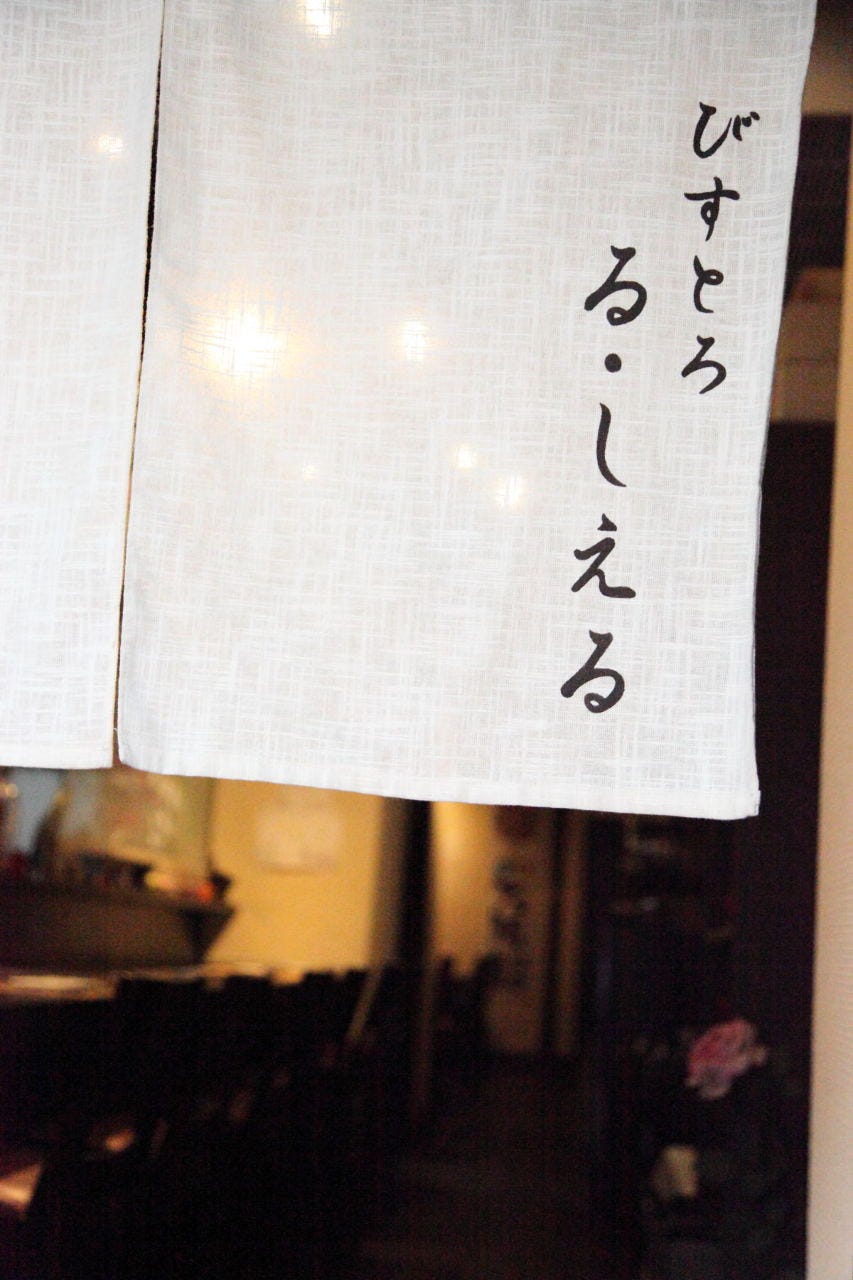 びすとろ
る・しえる